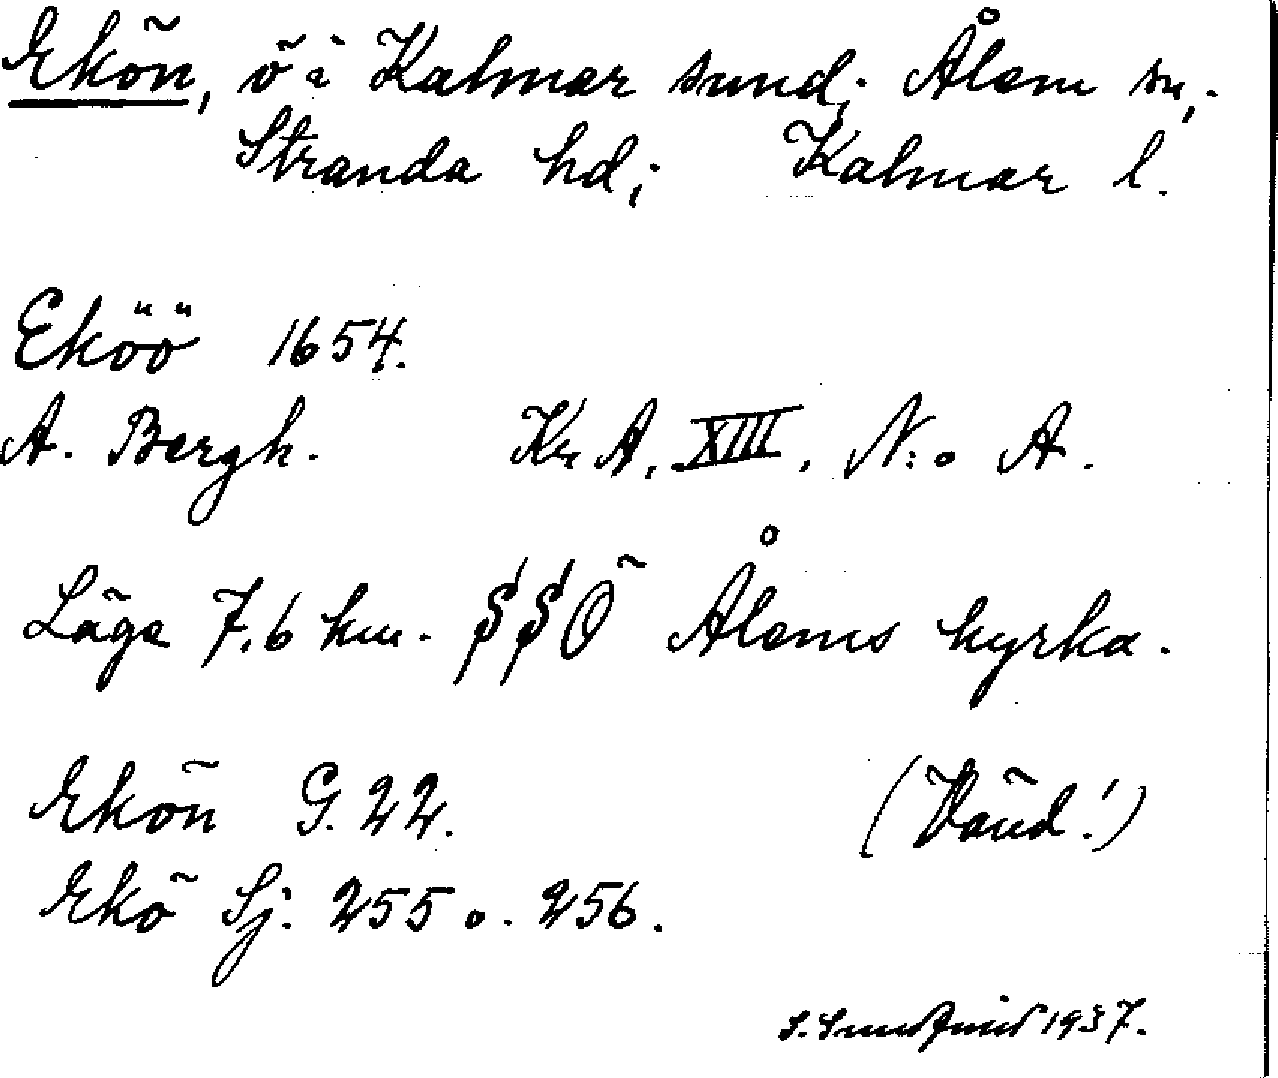 Ekön, ö i Kalmar sund; Ålem sn,.
Stranda hd; Kalmar l.
Eköö 1654.
A. Bergh. Kr A. XIII. N:o A.
Läge 7,6 km. SSÖ Ålems kyrka.
Ekön G. 22. (Vänd!)
Ekö Sj. 255 o. 256.
S. 1937.